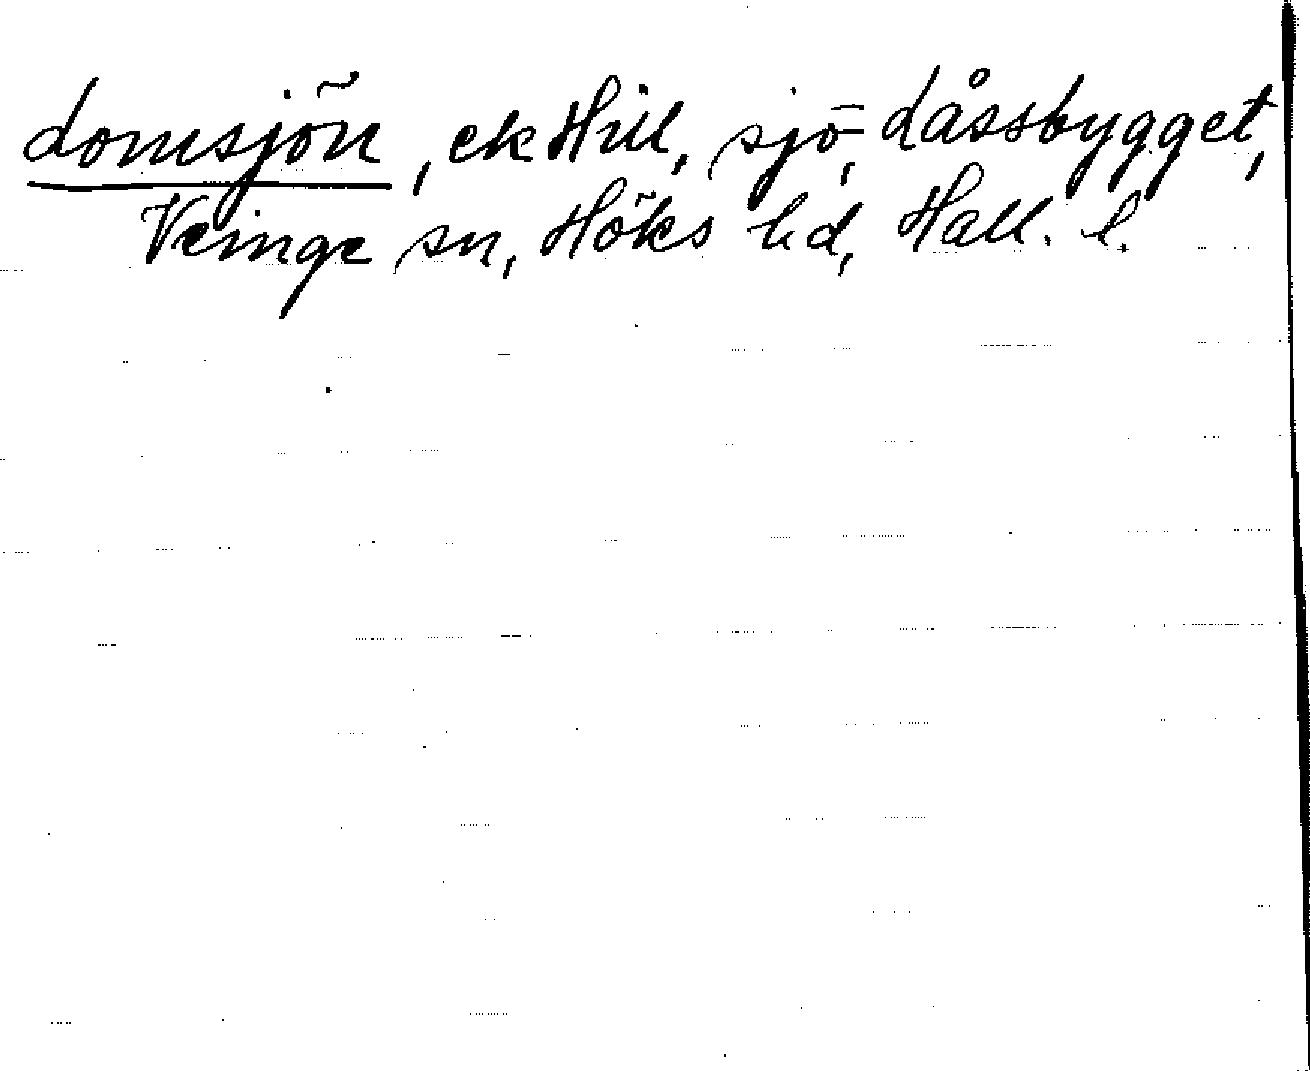 Lomsjön, ek Hill, sjö, Låssbygget,
Veinge sn, Höks hd, Hall. l.